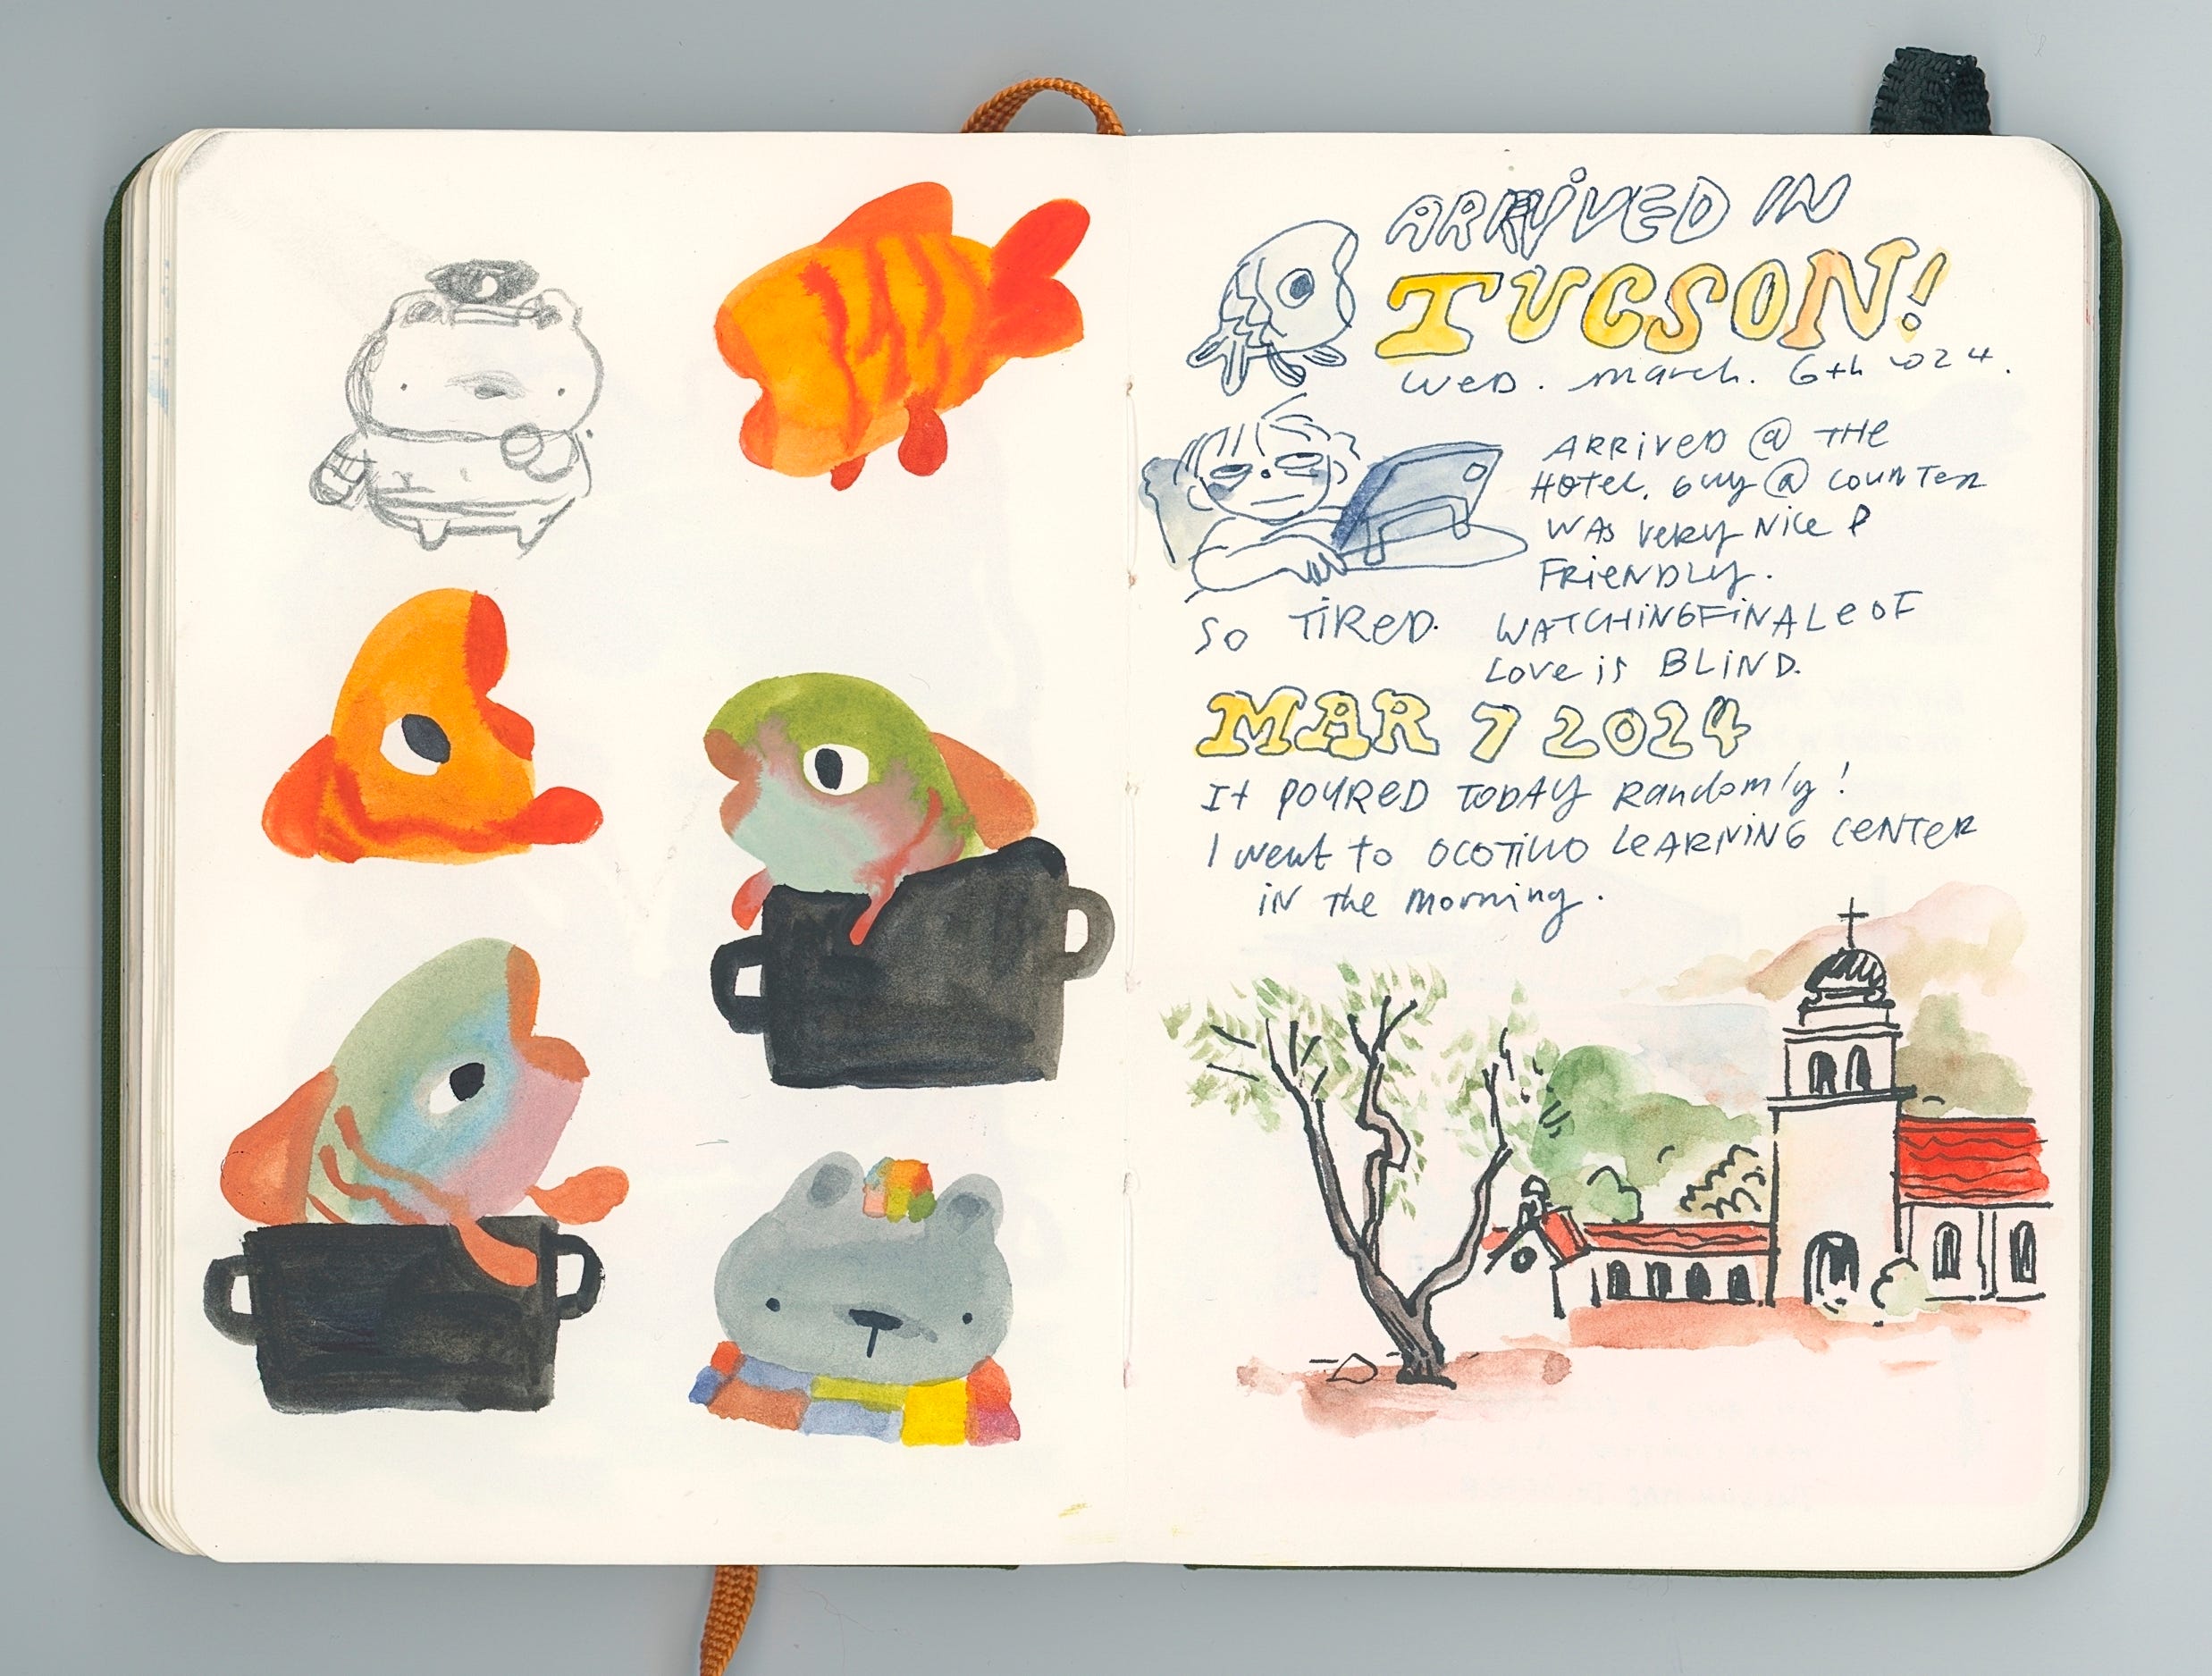 ARRIVED IN
TUCSON!
WED. march. 6th 2024.
ARRIVED @ THE
HOTEL. GUY @ COUNTER
WAS VERY NICE &
FRIENDLY.
SO TIRED. WATCHING FINALE OF
LOVE is BLIND.
MAR 7 2024
It POURED TODAY Randomly!
I went to OCOTILLO LEARNING CENTER
IN the morning.